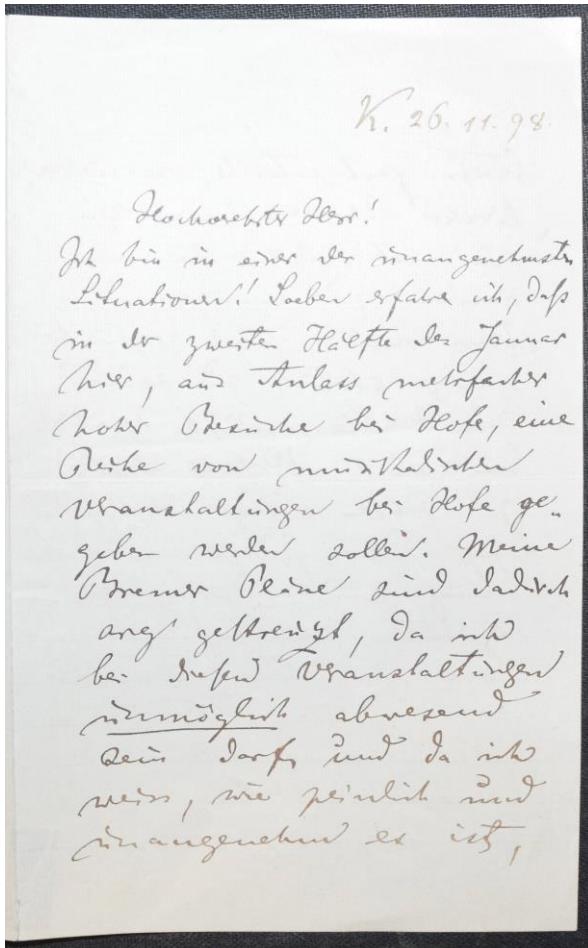 K. 26.11.98.
Hochverehrter Herr!
Ich bin in einer der unangenehmsten
Situationen! Soeben erfahre ich, daß
in der zweiten Hälfte des Januar
hier, aus Anlass mehrfacher
hoher Besuche bei Hofe, eine
Reihe von musikalischen
Veranstaltungen bei Hofe ge„
geben werden sollen. Meine
Bremer Pläne sind dadurch
arg gekreuzt, da ich
bei diesen Veranstaltungen
unmöglich abwesend
sein darf, und da ich
weiss, wie peinlich und
unangenehm es ist,